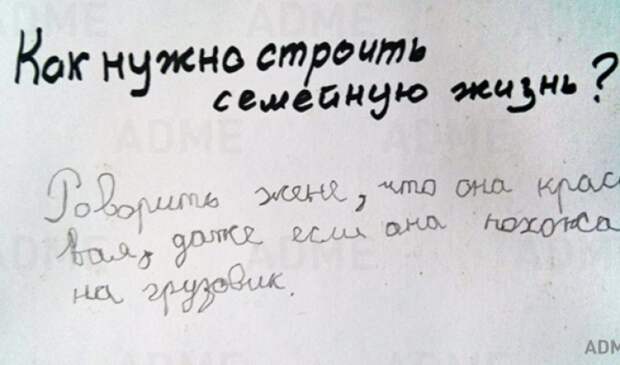 Как нужно строить
семейную жизнь?
Говорить жене, что она крас
вая, даже если она похожа
на грузовик.
ADME
ADME
ADME
ADM